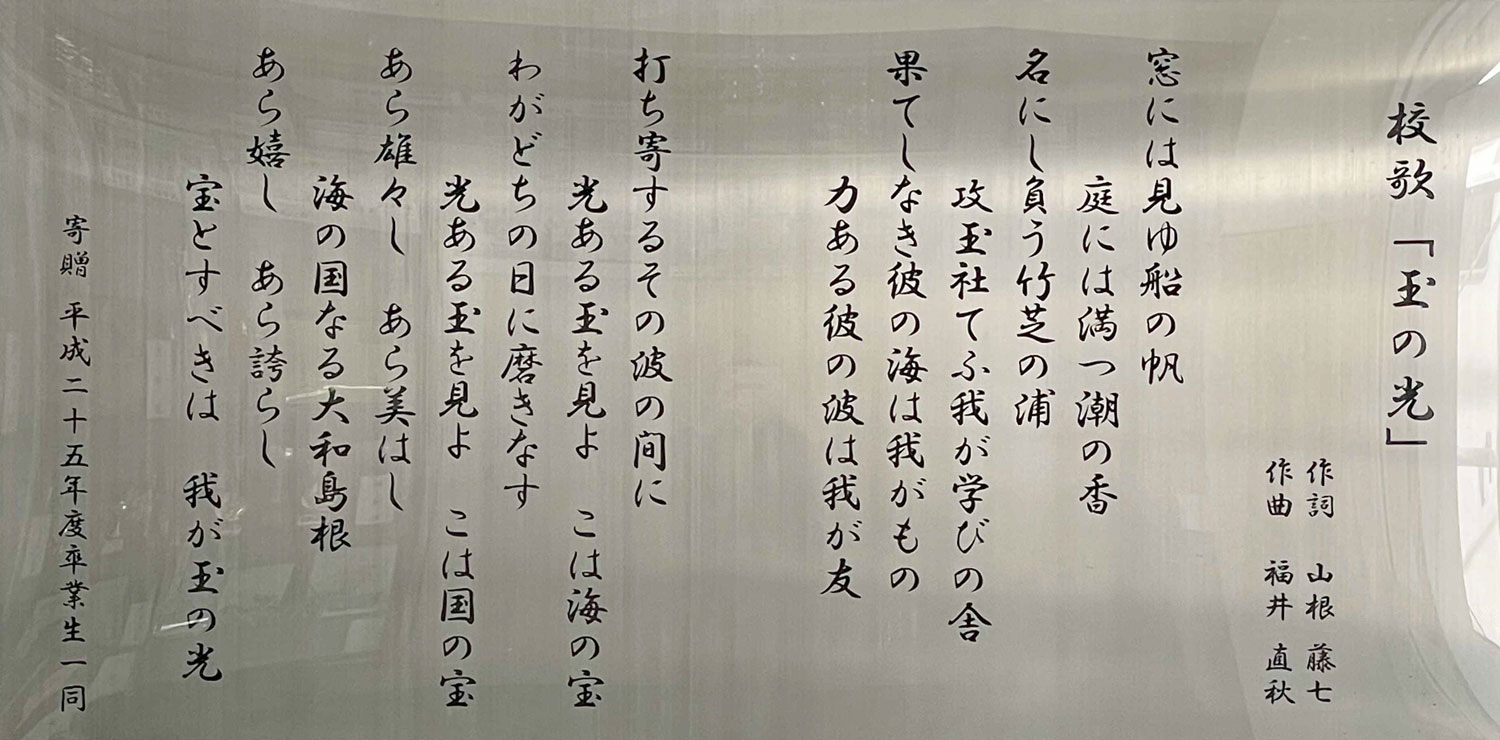 校歌「玉の光」
作詞 山根 藤七
作曲 福井 直秋
窓には見ゆ船の帆
庭には満つ潮の香
名にし負う竹芝の浦
攻玉社てふ我が学びの舎
果てしなき彼の海は我がもの
力ある彼の波は我が友
打ち寄するその波の間に
光ある玉を見よ こは海の宝
わがどちの日に磨きなす
光ある玉を見よ こは国の宝
あら雄々し あら美はし
海の国なる大和島根
あら嬉し あら誇らし
宝とすべきは 我が玉の光
寄贈 平成二十五年度卒業生一同